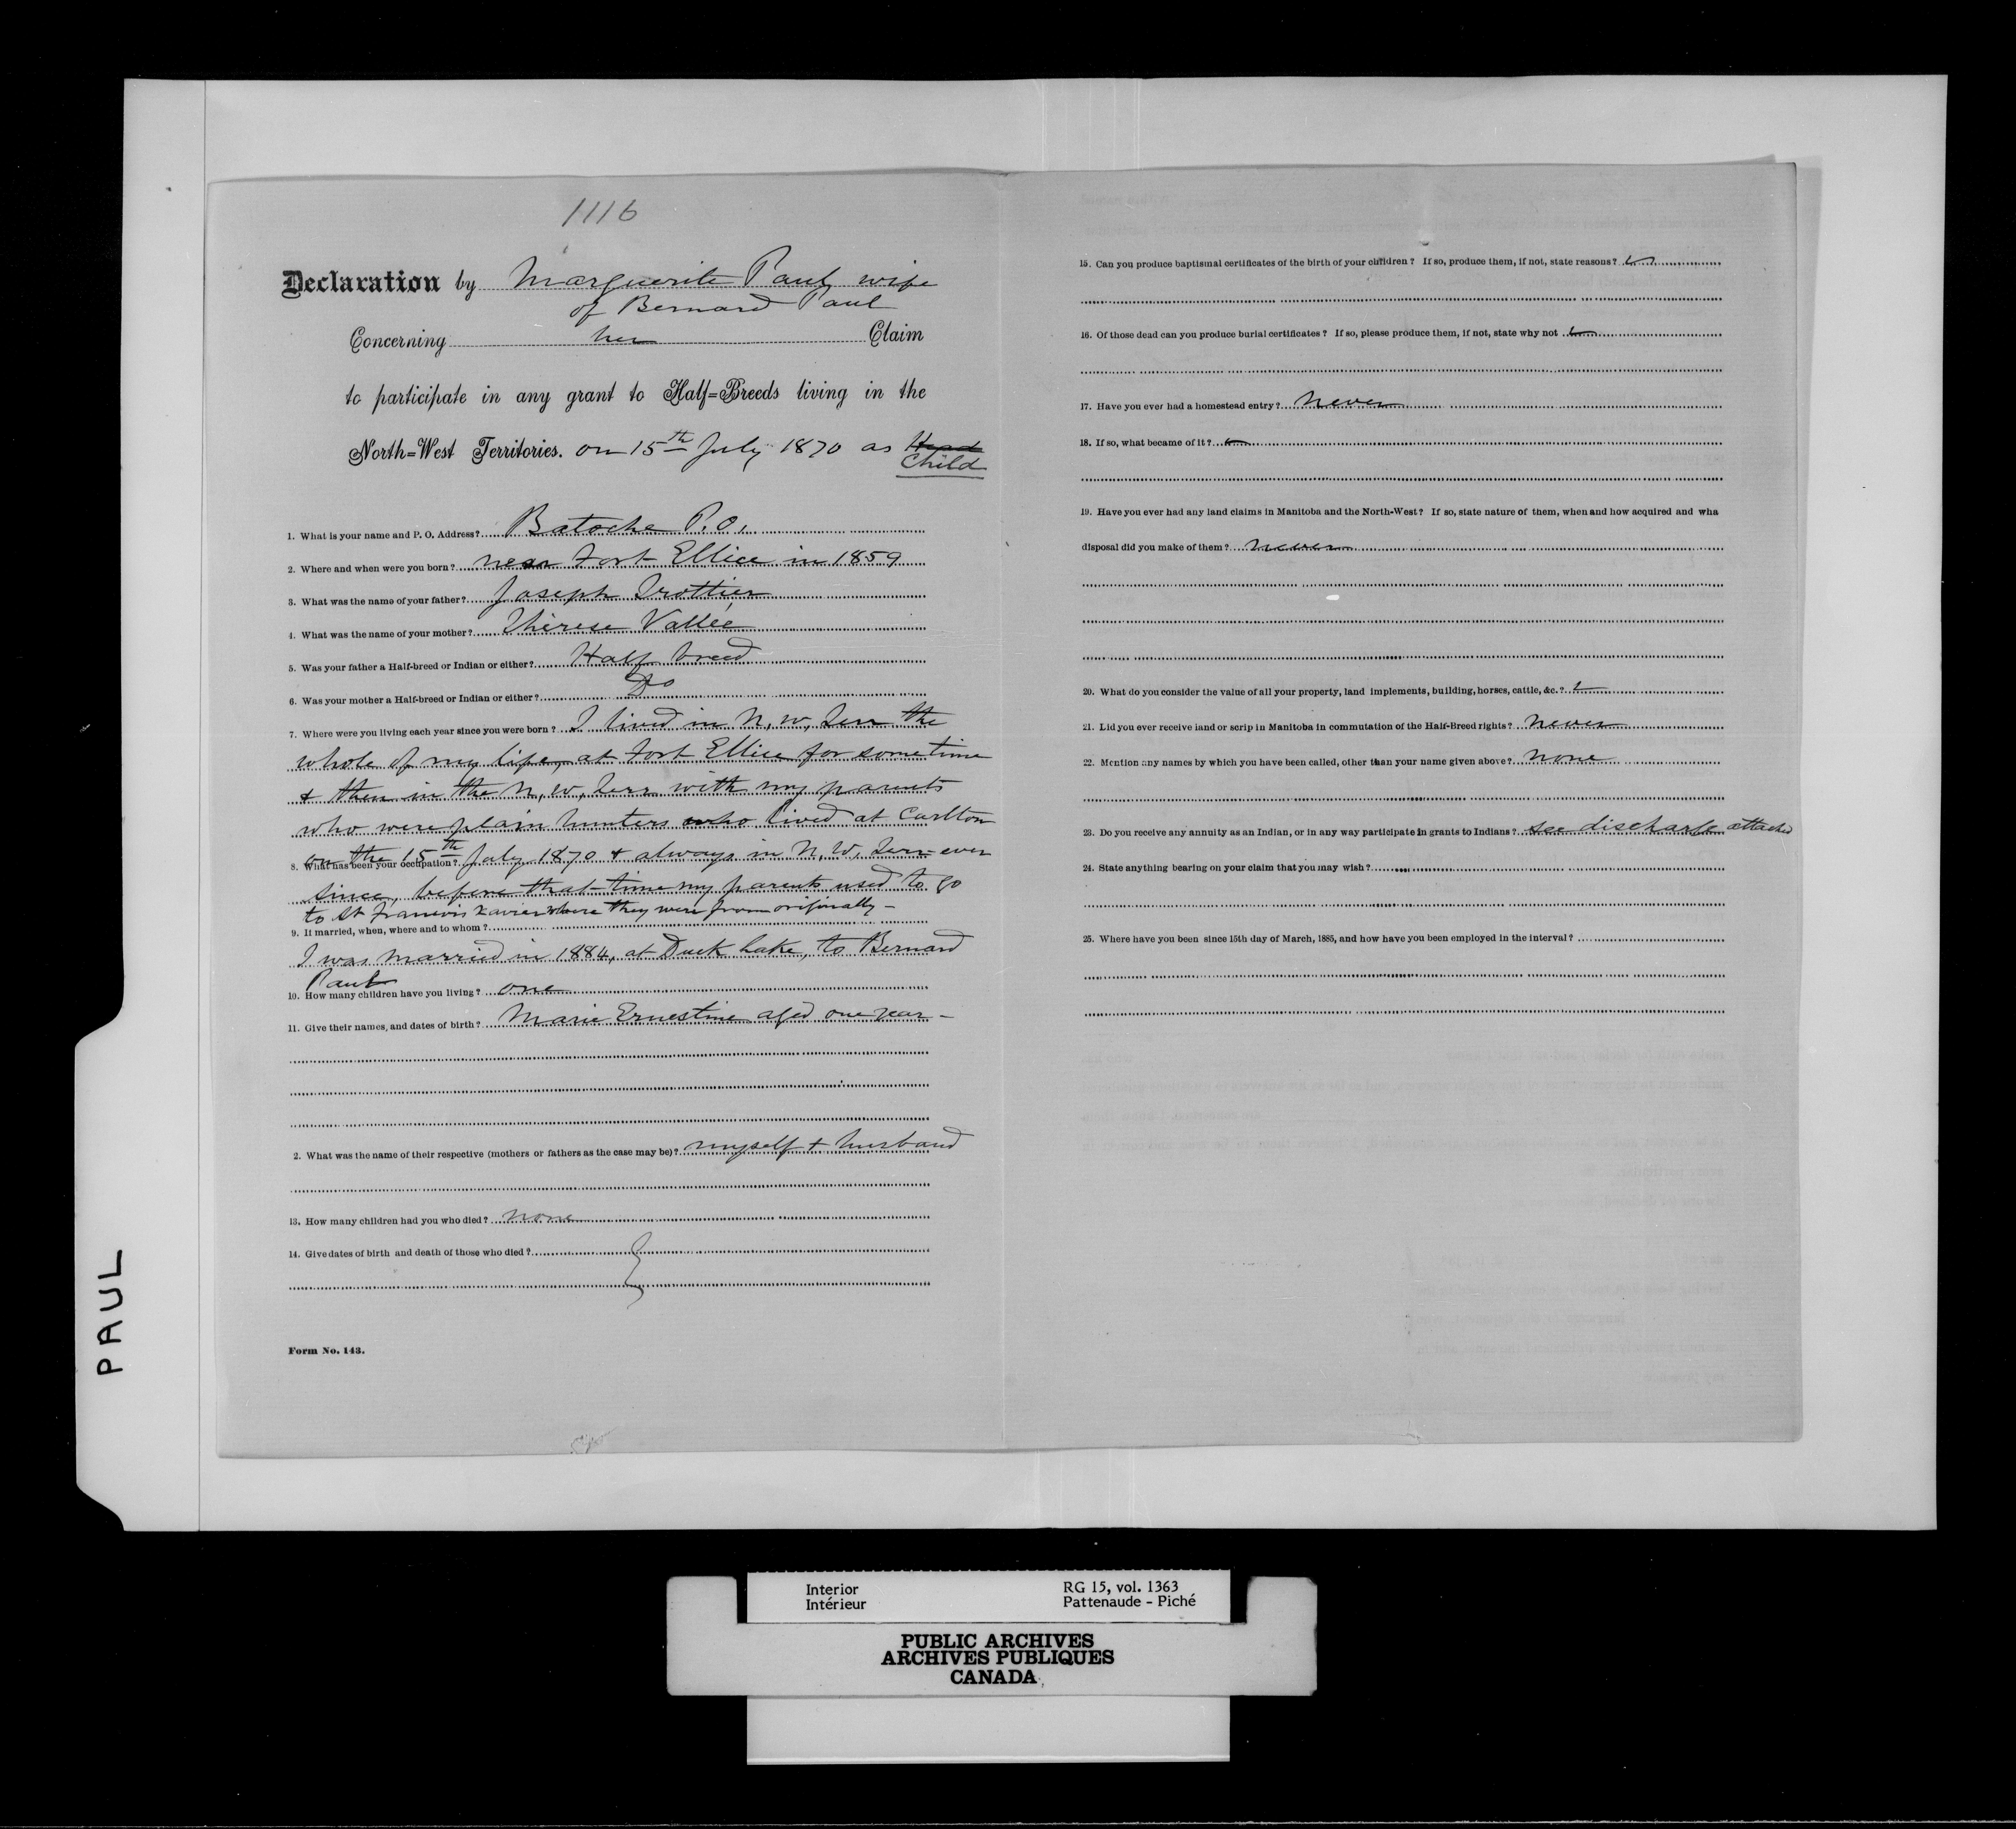 1116
Declaration by Marguerite Paul, wife
of Bernard Paul
Concerning her Claim
to participate in any grant to Half=Breeds living in the
North=West Territories. on 15th July 1870 as Head
Child
1. What is your name and P. O. Address? Batoche P.O.
2. Where and when were you born? near Fort Ellice in 1859
3. What was the name of your father? Joseph Trottier
4. What was the name of your mother? Thérèse Vallée
5. Was your father a Half-breed or Indian or either? Half breed
6. Was your mother a Half-breed or Indian or either? Do
7. Where were you living each year since you were born? I lived in N. W. Terr the
whole of my life, at Fort Ellice for sometime
& then in the N. W. Terr with my parents
who were plain hunters who lived at Carlton
on the 15th July 1870 & always in N. W. Terr ever
8. What has been your occupation?
since, before that time my parents used to go
to St Francois Xavier where they were from originally –
9. If married, when, where and to whom?
I was married in 1884, at Duck Lake, to Bernard
Paul
10. How many children have you living? one
11. Give their names, and dates of birth? Marie Ernestine aged one year –
2. What was the name of their respective (mothers or fathers as the case may be)? myself & husband
13. How many children had you who died? none
14. Give dates of birth and death of those who died?
Form No. 143.
15. Can you produce baptismal certificates of the birth of your children? If so, produce them, if not, state reasons?
16. Of those dead can you produce burial certificates? If so, please produce them, if not, state why not
17. Have you ever had a homestead entry? Never
18. If so, what became of it?
19. Have you ever had any land claims in Manitoba and the North-West? If so, state nature of them, when and how acquired and wha
disposal did you make of them? never
20. What do you consider the value of all your property, land implements, building, horses, cattle, &c.?
21. Lid you ever receive land or scrip in Manitoba in commutation of the Half-Breed rights? Never
22. Mention any names by which you have been called, other than your name given above? none
23. Do you receive any annuity as an Indian, or in any way participate in grants to Indians? see discharge attached
24. State anything bearing on your claim that you may wish?
25. Where have you been since 15th day of March, 1885, and how have you been employed in the interval?
PAUL
Interior
Intérieur
RG 15, vol. 1363
Pattenaude - Piché
PUBLIC ARCHIVES
ARCHIVES PUBLIQUES
CANADA